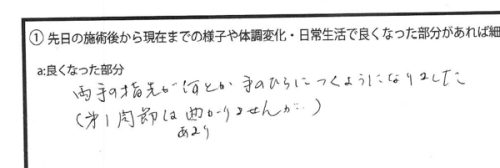 ① 先日の施術後から現在までの様子や体調変化・日常生活で良くなった部分があれば細
a:良くなった部分
両手の指先が何とか手のひらにつくようになりました
(第1関節は曲がりませんが…)
あまり